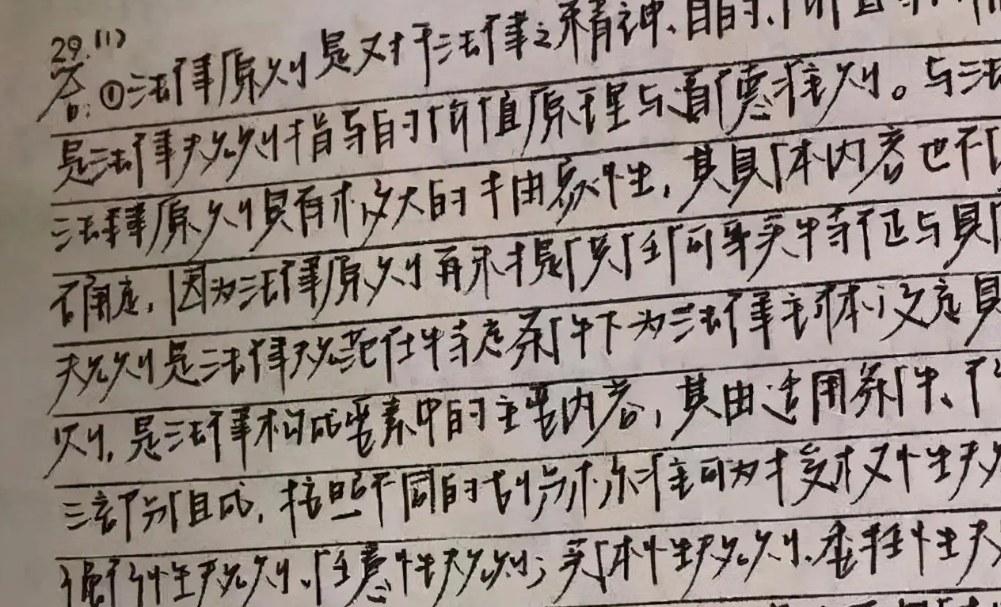 29.(1)
答:①法律原则是对于法律之精神、目的、价值
是法律规则指导目的价值原理与道德准则。与法
法律原则具有极大的抽象性,其具体内容也不
确定,因为法律原则并未提供任何事实特征与具
规则是法律规范在特定条件下为法律主体设定具
则,是法律构成要素中的主要内容,其由适用条件、
三部分组成,按照不同的划分标准可为授权性规
性规则、任意性规则;实体性规则、